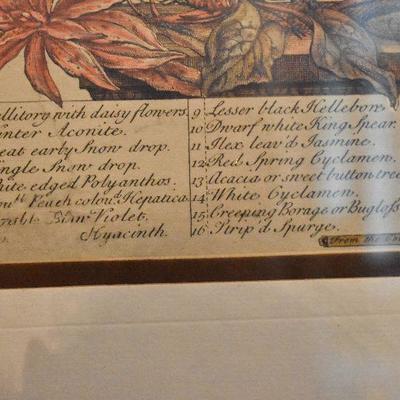 ellitory with daisy flowers.
nter Aconite.
eat early Snow drop.
ngle Snow drop.
ite edged Polyanthos.
Peach colour'd Hepatica
Blew Violet.
Hyacinth
9 Lesser black Hellebore
10 Dwarf white King Spear.
11 Ilex leav'd Jasmine.
12 Red Spring Cyclamen.
13 Acacia or sweet button tree
14 White Cyclamen.
15 Creeping Borage or Bugloss
16 Strip'd Spurge.
From the